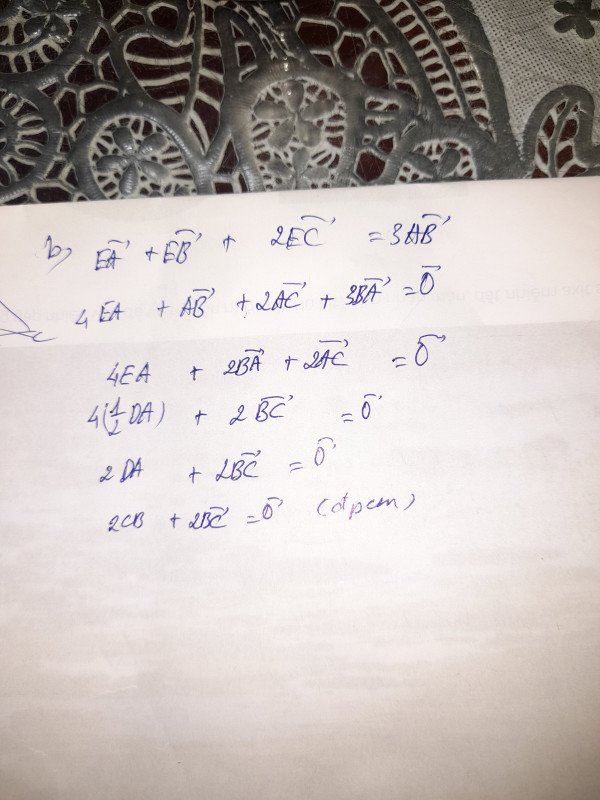 b, EA + EB + 2EC = 3AB
4EA + AB + 2AC + 3BA = 0
4EA + 2BA + 2AC = 0
4(1/2 DA) + 2BC = 0
2DA + 2BC = 0
2CB + 2BC = 0 (đpcm)